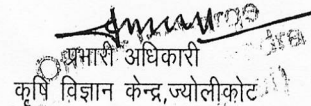 प्रभारी अधिकारी
कृषि विज्ञान केन्द्र,ज्योलीकोट